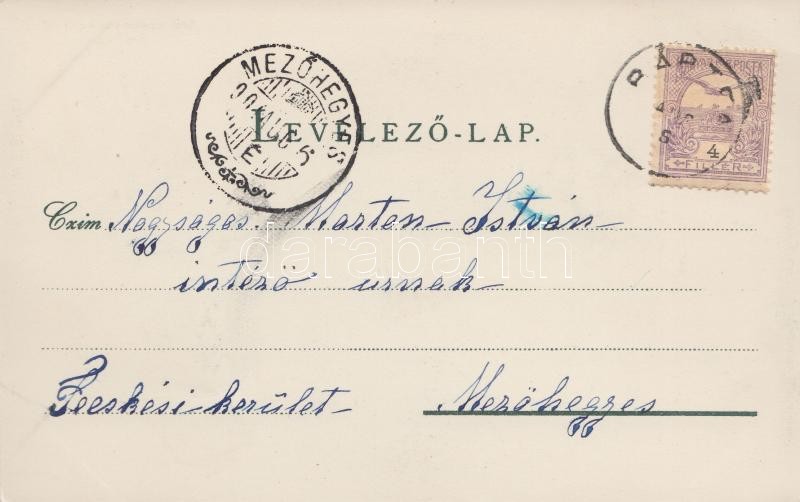 MEZŐHEGYES
LEVELEZŐ-LAP.
4
FILLÉR
Czim Nagyságos Marton István
intéző urnak
darabanth
Fecskési kerület Mezőhegyes